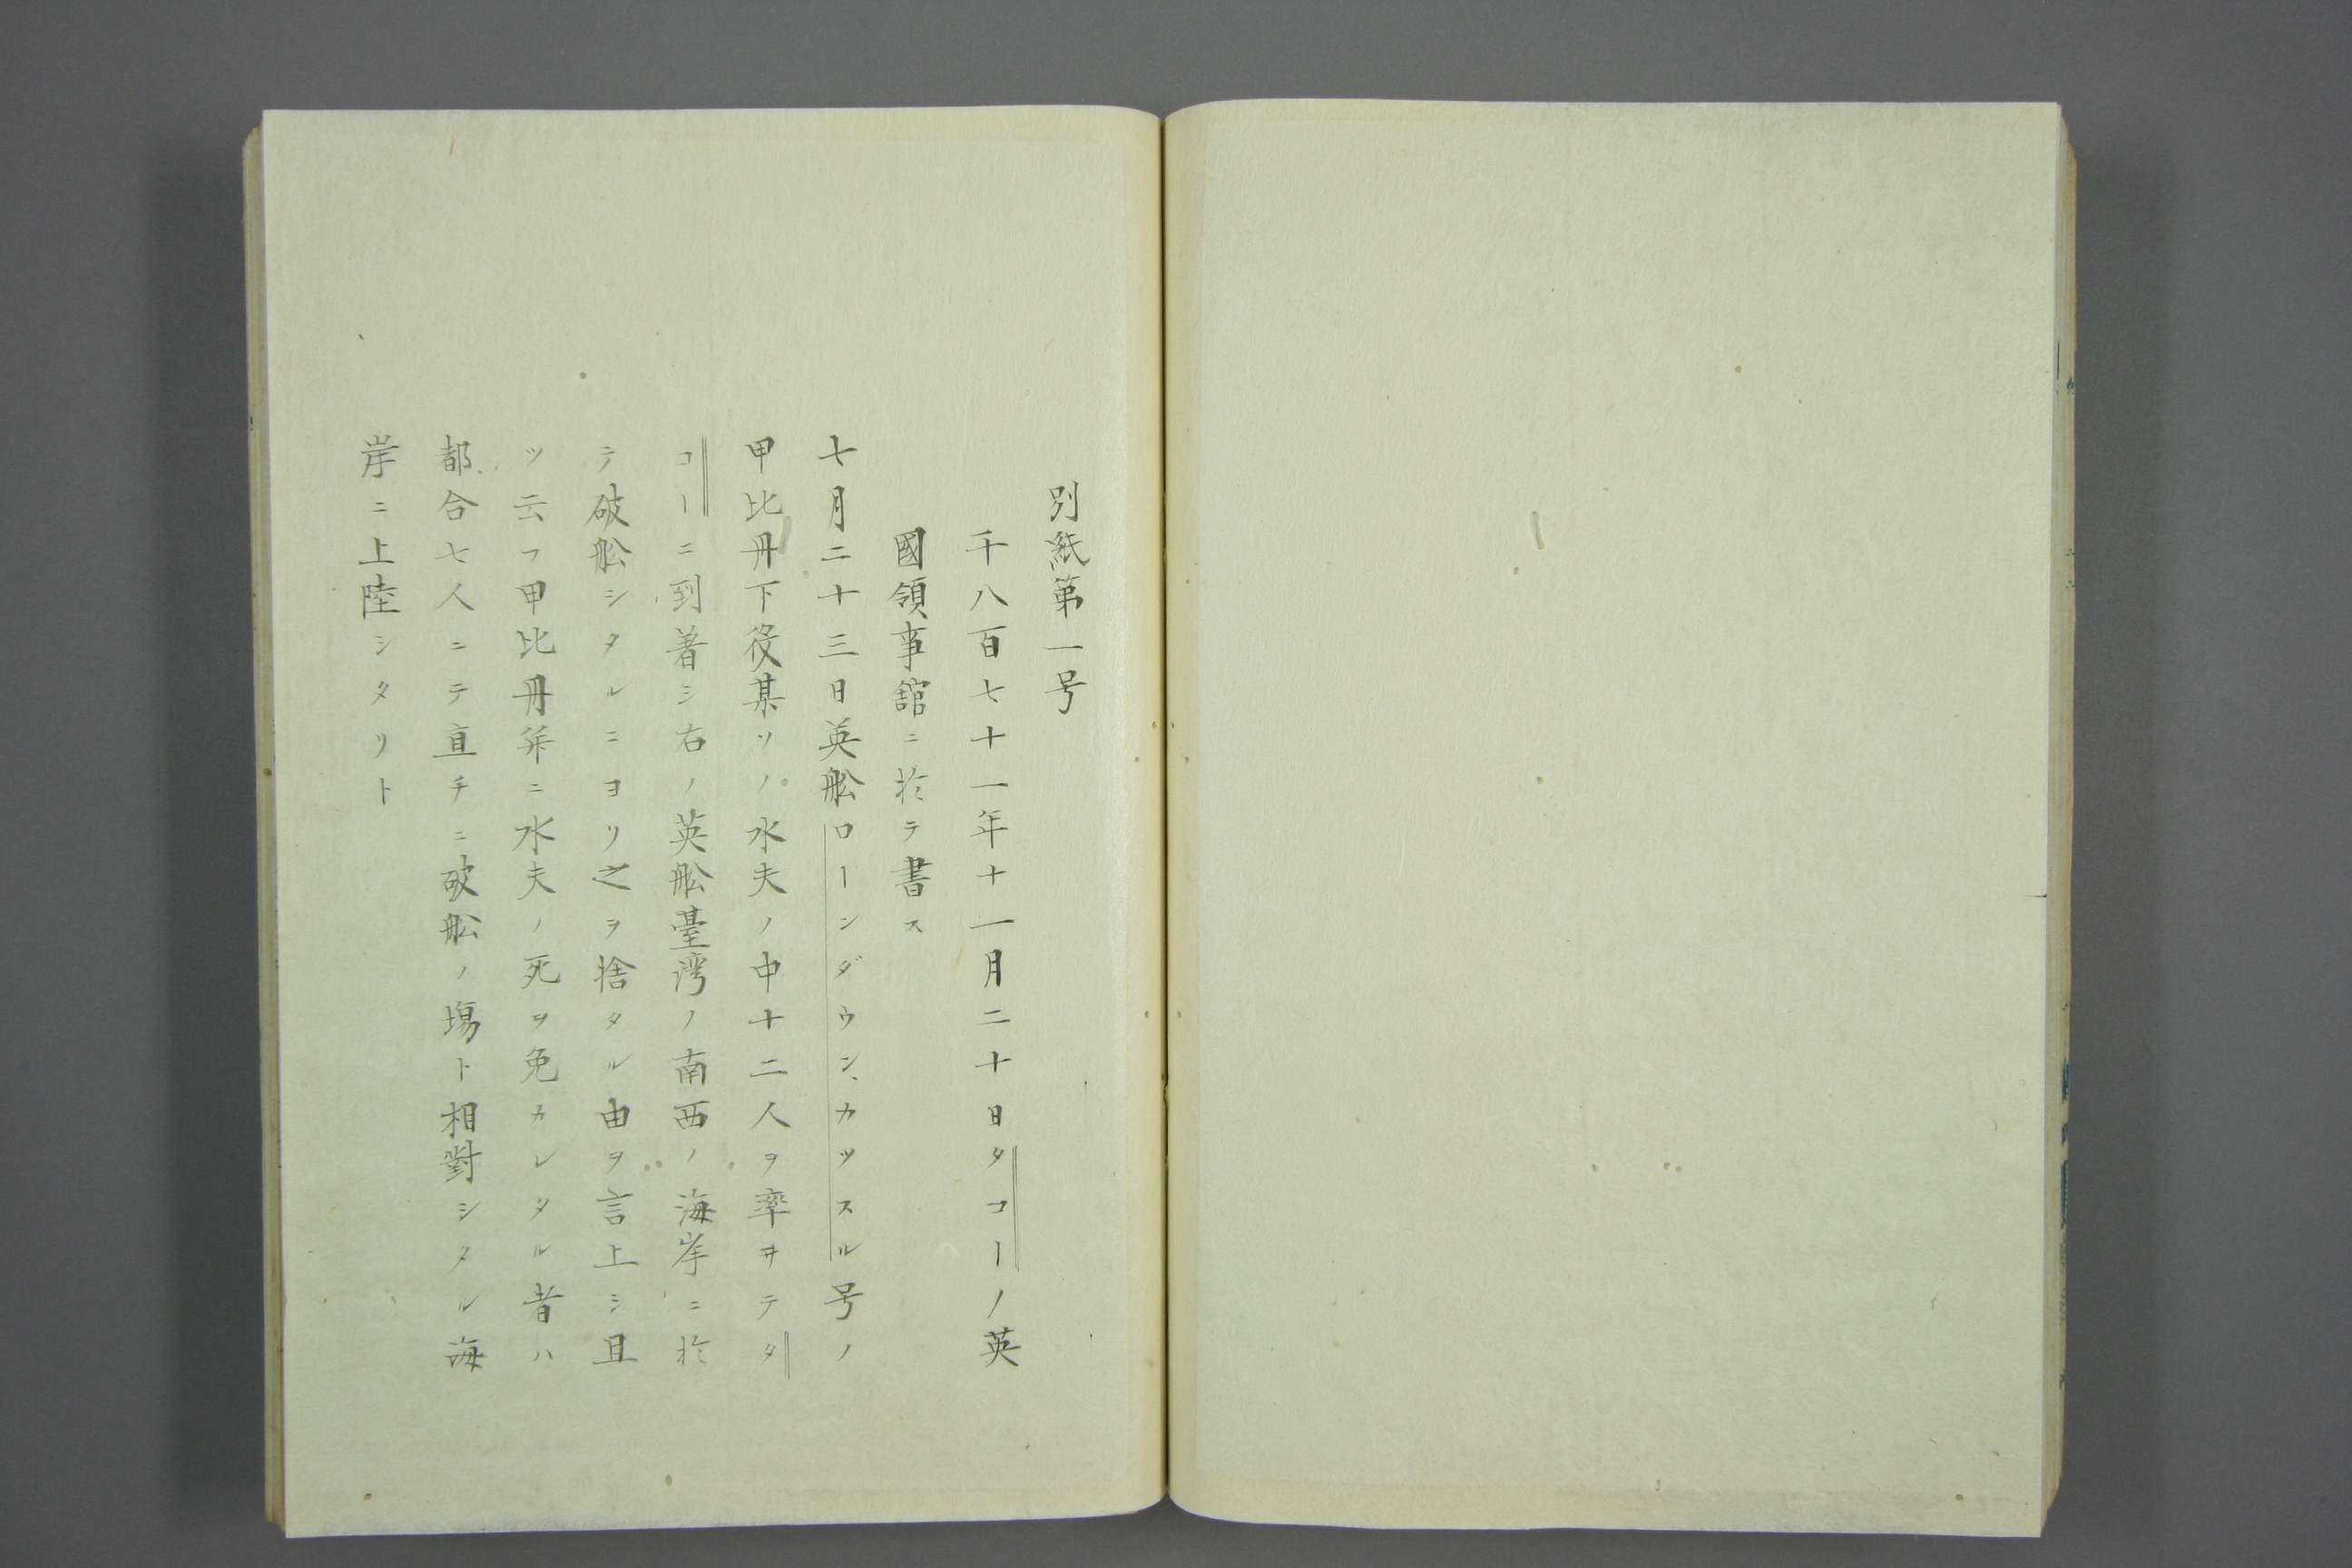 別紙第一号
千八百七十一年十一月二十日タコーノ英
國領事舘ニ於テ書ス
七月二十三日英舩ローンダウン、カツスル号ノ
甲比丹下役某ソノ水夫ノ中十二人ヲ率ヰテタ
コーニ到着シ右ノ英舩臺湾ノ南西ノ海岸ニ於
テ破舩シタルニヨリ之ヲ捨タル由ヲ言上シ且
ツ云フ甲比丹并ニ水夫ノ死ヲ免カレタル者ハ
都合七人ニテ直チニ破舩ノ塲ト相對シタル海
岸ニ上陸シタリト